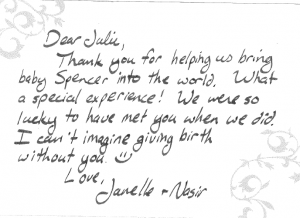 Dear Julie,
Thank you for helping us bring
baby Spencer into the world. What
a special experience! We were so
lucky to have met you when we did.
I can't imagine giving birth
without you. ☺
Love,
Janelle + Nasir